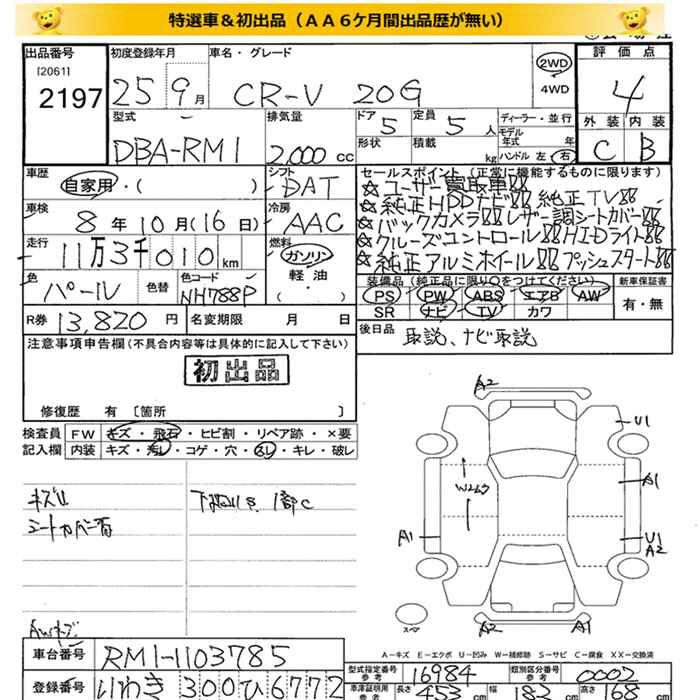 特選車＆初出品（ＡＡ６ケ月間出品歴が無い）
出品番号
[2061]
2197
初度登録年月
25 9月
車名・グレード
CR-V 20G
2WD
4WD
評価点
4
外装 内装
C B
型式
DBA-RM1
排気量
2,000 cc
ドア
5
形状
定員
5 人
積載
kg
ディーラー・並行
モデル年式 年
ハンドル 左 右
車歴
自家用・( )
シフト
DAT
車検
8年10月(16日)
冷房
AAC
走行
11万3千010km
燃料
ガソリン
軽油・
( )
色
パール
色替
色コード
NH788P
R券 13,820円
名変期限 月 日
セールスポイント（正常に機能するものに限ります）
☆ユーザー買取車!!
☆純正HDDナビ!! 純正TV!!
☆バックカメラ!! レザー調シートカバー!!
☆クルーズコントロール!! HIDライト!!
☆純正アルミホイール!! プッシュスタート!!
装備品（純正品に限り○をつけてください）
PS PW ABS エアB AW
SR ナビ TV カワ
新車保証書
有・無
後日品
取説、ナビ取説
注意事項申告欄（不具合内容等は具体的に記入して下さい）
初出品
修復歴 有 〔箇所 〕
検査員
記入欄
FW キズ・飛石・ヒビ割・リペア跡・×要
内装 キズ・汚レ・コゲ・穴・スレ・キレ・破レ
キズU
シートカバー有
1部C
AWキズ
A2
U1
A1
W2
A1
U1
A2
スペア
A2
A1
A－キズ E－エクボ U－凹み W－補修跡 S－サビ C－腐食 XX－交換済
車台番号
RM1-1103785
登録番号
いわき 300 ひ 6772
型式指定番号
参考
16984
類別区分番号
参考
0002
車庫証明用
参考
長さ
453 cm
幅
182 cm
高さ
168 cm